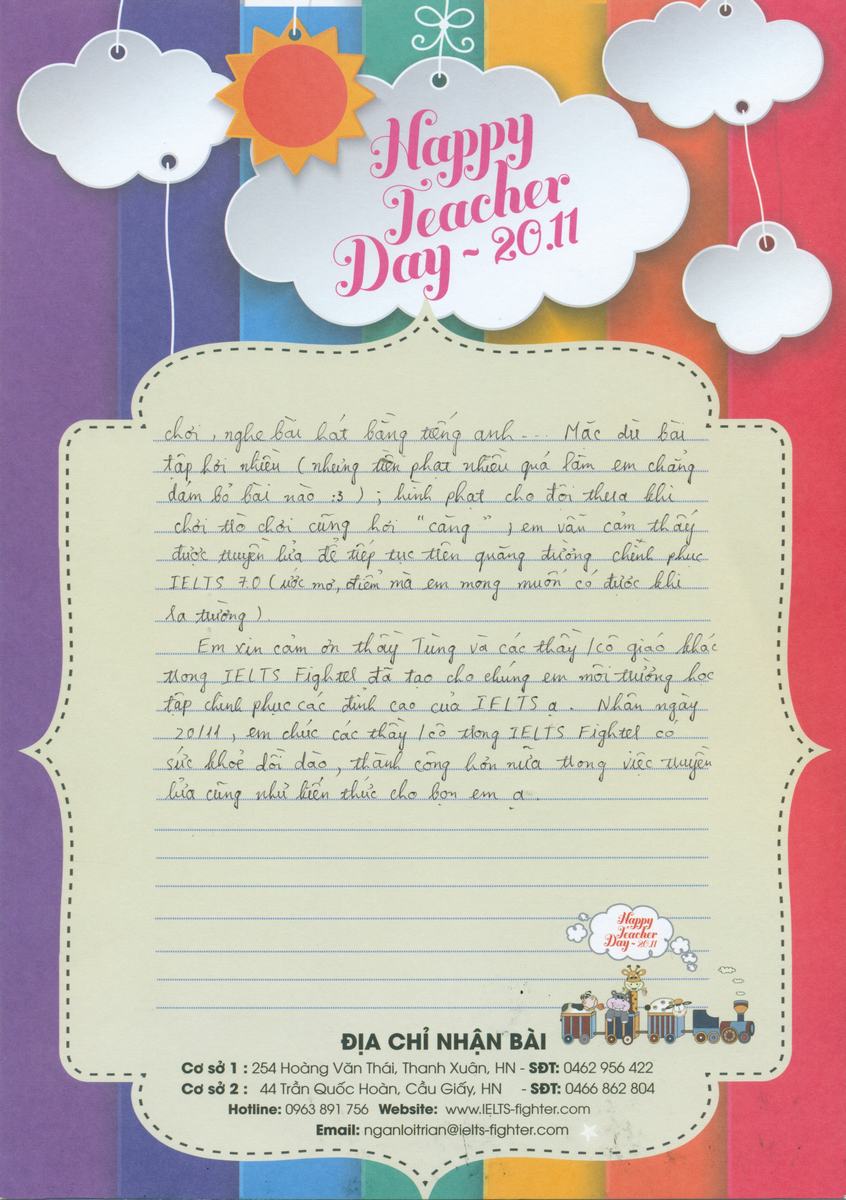 Happy
Teacher
Day ~ 20.11
chơi, nghe bài hát bằng tiếng anh... Mặc dù bài
tập hơi nhiều (nhưng tiền phạt nhiều quá lắm em chẳng
dám bỏ bài nào :3 ) ; hình phạt cho đội thua khi
chơi trò chơi cũng hơi "căng" , em vẫn cảm thấy
được truyền lửa để tiếp tục trên quãng đường chinh phục
IELTS 7.0 (ước mơ, điểm mà em mong muốn có được khi
ra trường ).
Em xin cảm ơn thầy Tùng và các thầy /cô giáo khác
trong IELTS Fighter đã tạo cho chúng em môi trường học
tập chinh phục các đỉnh cao của IELTS ạ. Nhân ngày
20/11, em chúc các thầy /cô trong IELTS Fighter có
sức khoẻ dồi dào, thành công hơn nữa trong việc truyền
lửa cũng như kiến thức cho bọn em ạ.
Happy
Teacher
Day ~ 20.11
ĐỊA CHỈ NHẬN BÀI
Cơ sở 1 : 254 Hoàng Văn Thái, Thanh Xuân, HN - SĐT: 0462 956 422
Cơ sở 2 : 44 Trần Quốc Hoàn, Cầu Giấy, HN - SĐT: 0466 862 804
Hotline: 0963 891 756 Website: www.IELTS-fighter.com
Email: nganloitrian@ielts-fighter.com